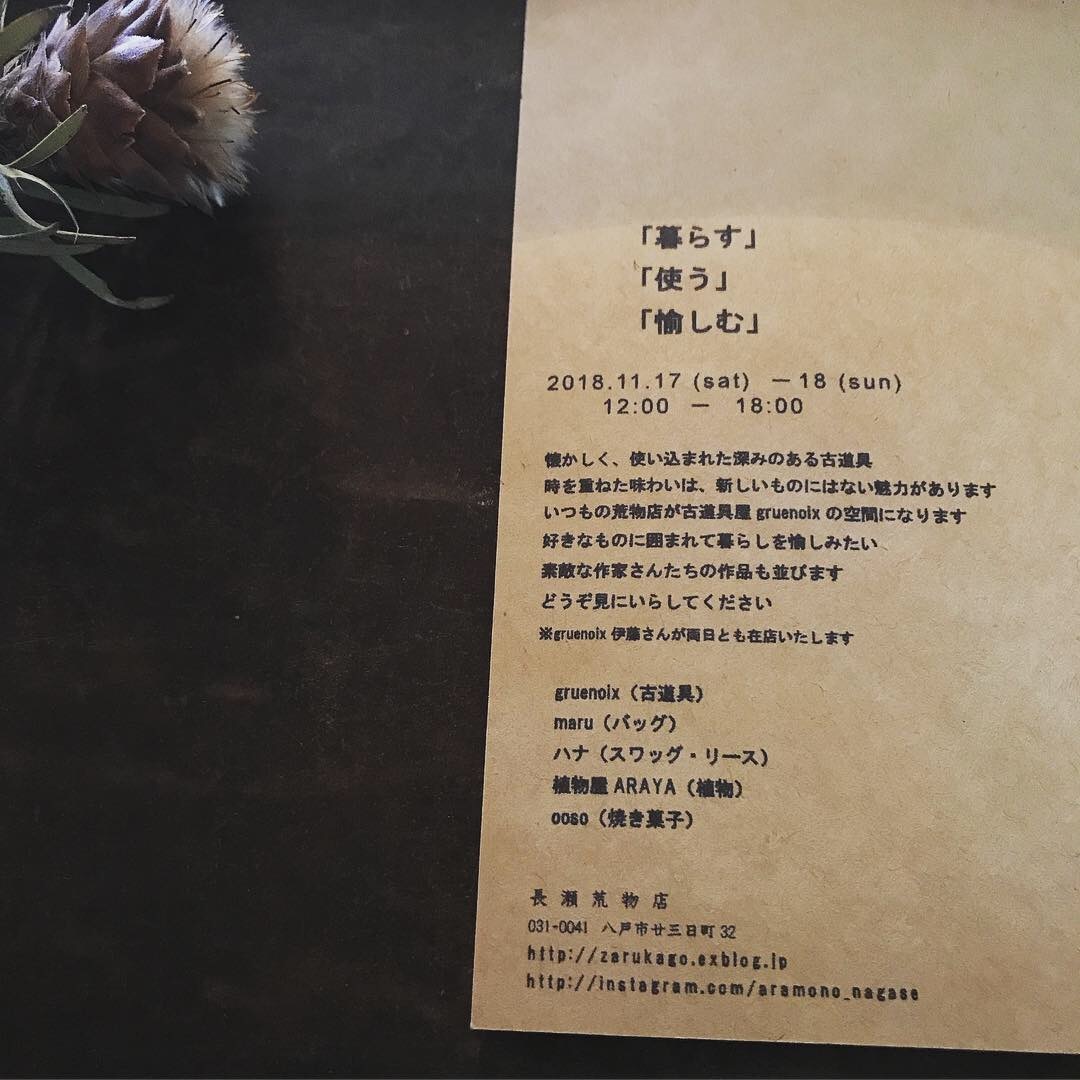 「暮らす」
「使う」
「愉しむ」
2018.11.17 (sat) ー18 (sun)
12:00 ー 18:00
懐かしく、使い込まれた深みのある古道具
時を重ねた味わいは、新しいものにはない魅力があります
いつもの荒物店が古道具屋 gruenoix の空間になります
好きなものに囲まれて暮らしを愉しみたい
素敵な作家さんたちの作品も並びます
どうぞ見にいらしてください
※gruenoix 伊藤さんが両日とも在店いたします
gruenoix（古道具）
maru（バッグ）
ハナ（スワッグ・リース）
植物屋 ARAYA（植物）
ooso（焼き菓子）
長瀬荒物店
031-0041 八戸市廿三日町 32
http://zarukago.exblog.jp
http://instagram.com/aramono_nagase